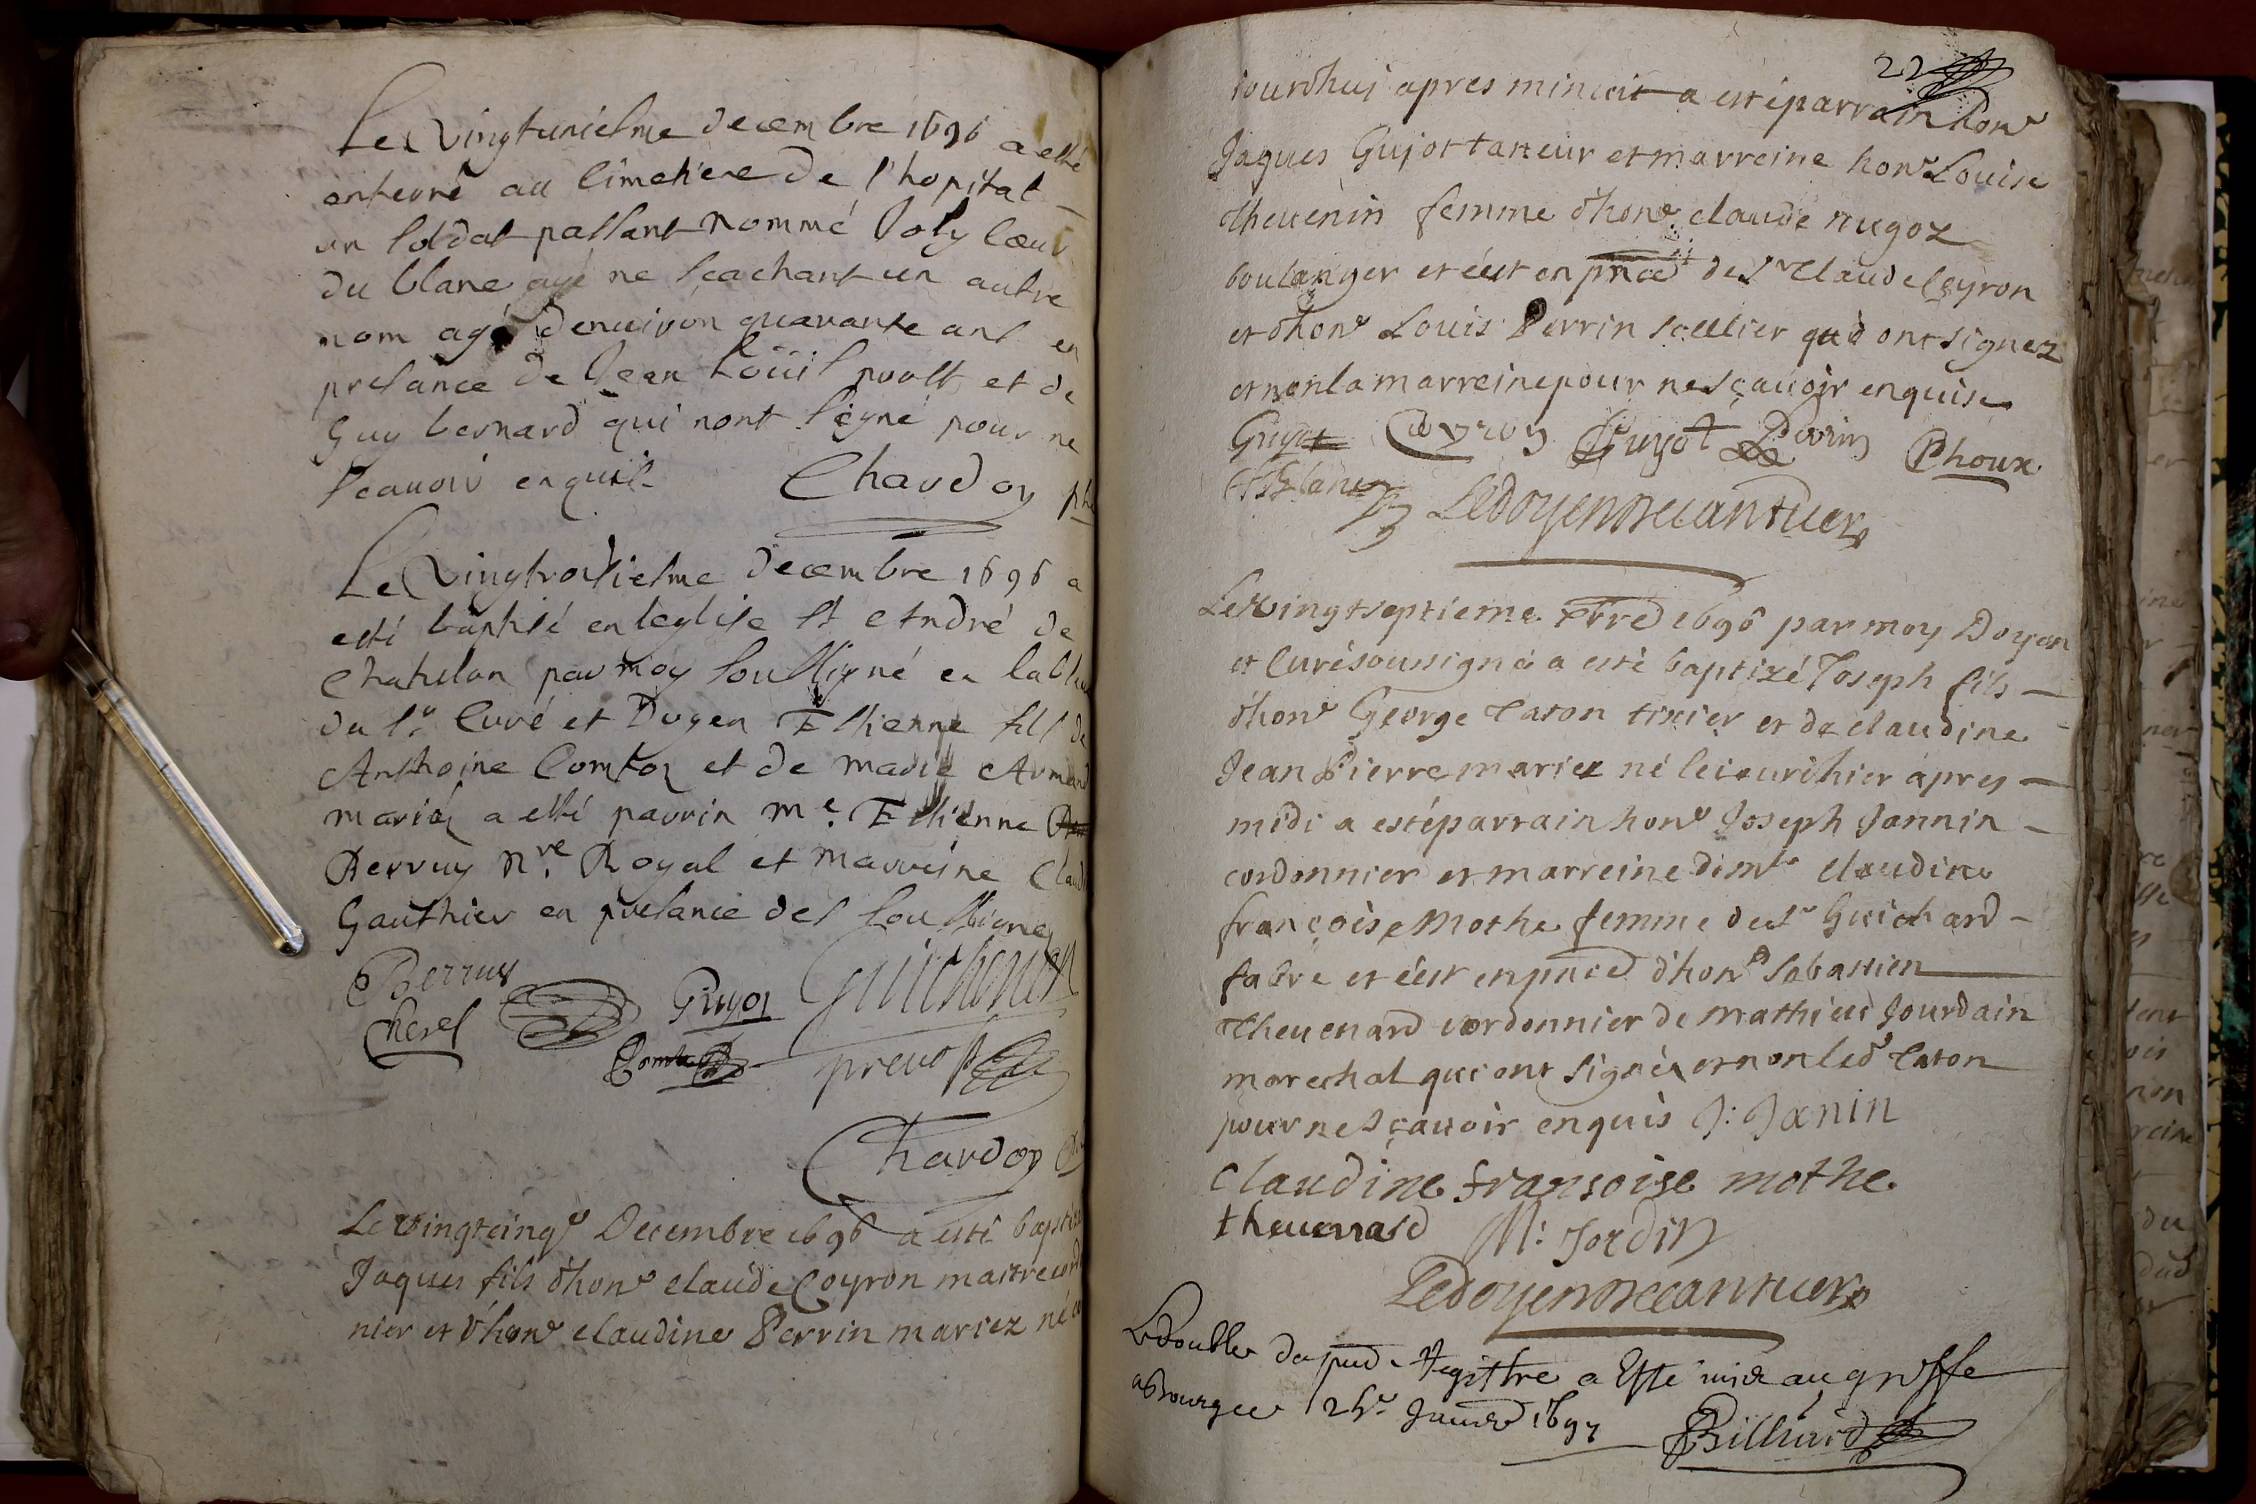 Le Vingtuniesme decembre 1696 a esté
enterré au Cimetiere de l'hopital
un soldat passant nommé Joly Cœur
du blanc ne sçachant un autre
nom agé denuiron quarante ans en
presance de Jean Loüis et de
Guy bernard qui nont signé pour ne
scauoir enquis Chardon
Le Vingtroisiesme decembre 1696 a
esté baptisé en leglise st André de
Chatelon par moy soussigné en
du sr. Curé et Doyen Estienne fils de
Anthoine Comtoz et de marie
mariéz a esté parrin me. Estienne
Berruy nre. Royal et marreine
Gauthier en presance des soussignez
Berruy
Cheref Guyot Guichenet
Comte prevost
Chardon
Le vingtcinqe Decembre 1696 a esté
Jaques fils d'hone Claude Coyron maitre
nier et d'hone claudine Perrin mariez né
22
iourdhuy apres minuit a esté parrain hone
Jaques Gujot tatteur et marreine hone Louise
Theuenin femme d'hone claude nugoz
boulanger et c'est en pnce de Sr Claude Coyron
et d'hone Louis Perrin scellier qui ont signez
et non la marreine pour ne sçauoir enquise
Guyot Coyron Guyot Perin Choux
Ledoyen Decantuer
Le Vingtseptieme xbre 1696 par moy Doyen
et Curé soussigné a esté baptizé Joseph fils
d'hone George Caton tixier et de claudine
Jean Pierre mariez né le iourdhier apres
midi a esté parrain hone Joseph Jannin
cordonnier et marreine claudine
françoise Mothe femme de Sr Guichard
fabre et c'est en pnce d'hone Sebastien
Theuenard cordonnier de Mathieu Jourdain
marechal qui ont signéz et non led Caton
pour ne sçauoir enquis J: Janin
claudine fransoise mothe
theuenard M: Jordin
Ledoyen Decantuer
Le double du pnt Regittre a Esté mis au greffe
a Bourg ce 24e Januier 1697 Billiard